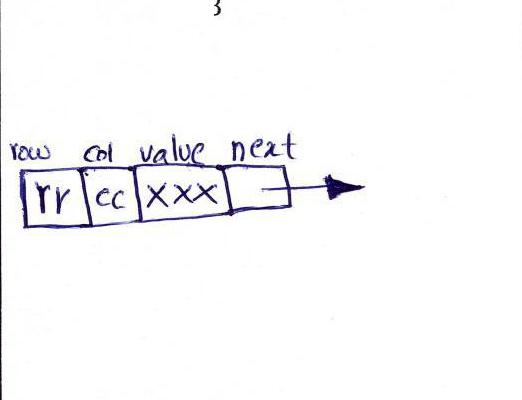 }
row col value next
rr cc xxx